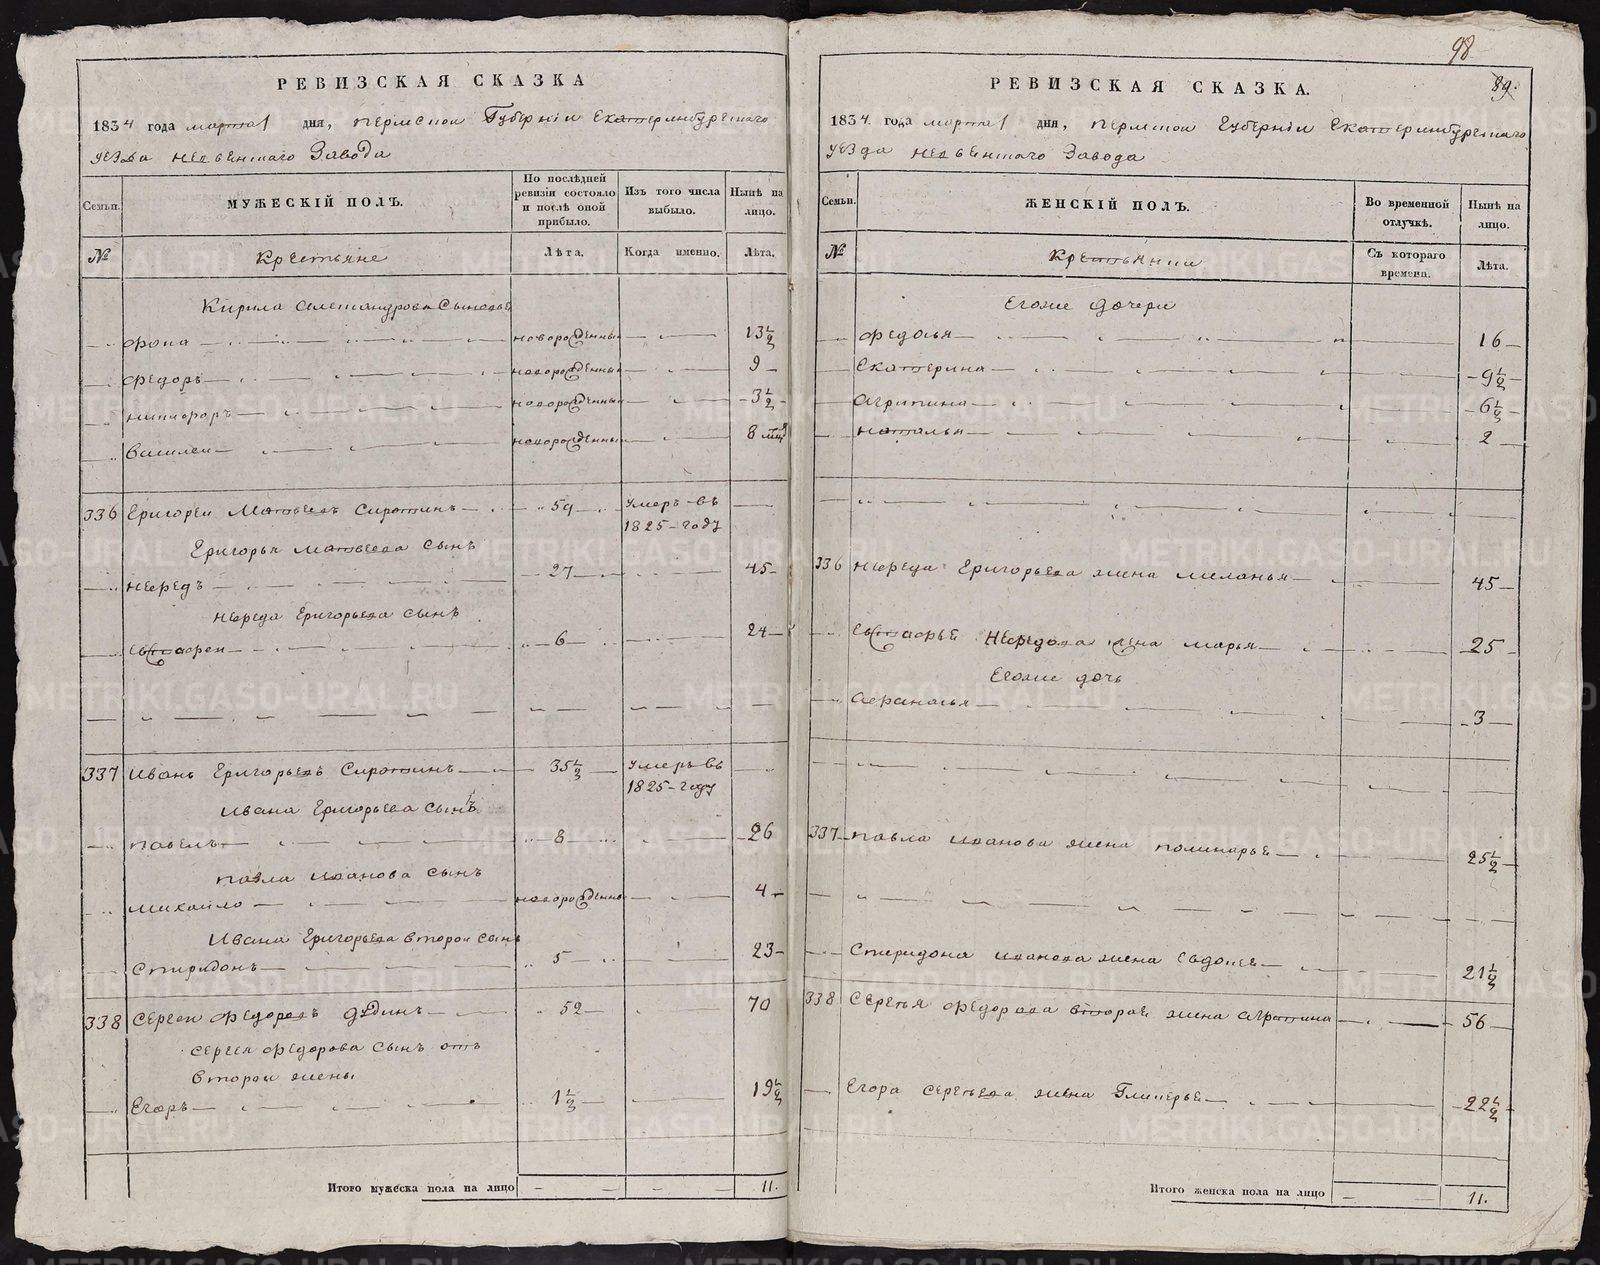 РЕВИЗСКАЯ СКАЗКА
1834 года марта 1 дня, пермской Губернiи Екатеринбургскаго
уезда невьянскаго Завода
Семьи.
МУЖЕСКIЙ ПОЛЪ.
По послѣдней ревизiи состояло и послѣ оной прибыло.
Изъ того числа выбыло.
Нынѣ на лицо.
№
Крестьяне
Лѣта.
Когда именно.
Лѣта.
Кирила Александрова Сыновья
Фома новорожденный 13½
Федоръ новорожденный 9
никифоръ новорожденный 3½
Василеи новорожденный 8
336 Григореи Матвеевъ Сиротинъ 59 умеръ въ
1825 году
Григорья матвеева сынъ
нефедъ 27 45
нефеда Григорьева сынъ
евстафеи 6 24
337 Иванъ Григорьевъ Сиротинъ 35½ умеръ въ
1825 году
Ивана Григорьева сынъ
павелъ 8 26
павла иванова сынъ
михайло новорожденный 4
Ивана Григорьева второи сынъ
Спиридонъ 5 23
338 Сергеи Федоровъ дядинъ 52 70
сергея федорова сынъ отъ
второи жены
Егоръ 1½ 19½
Итого мужеска пола на лицо 11.
98
89.
РЕВИЗСКАЯ СКАЗКА.
1834 года марта 1 дня, пермской губернiи Екатеринбургскаго
уезда невьянскаго Завода
Семьи.
ЖЕНСКIЙ ПОЛЪ.
Во временной отлучкѣ.
Нынѣ на лицо.
№
Крестьянки
Съ котораго времени.
Лѣта.
Егоже дочери
федосья 16
екатерина 9½
агрипина 6½
наталья 2
336 нефеда Григорьева жена маланья 45
евстафья Нефедова жена марья 25
Егоже дочь
афанасья 3
337 павла иванова жена полинарья 25½
Спиридона иванова жена евдокея 21½
338 Сергея федорова вторая жена агрипина 56
Егора сергеева жена Гликерья 22½
Итого женска пола на лицо 11.
METRIKI.GASO-URAL.RU